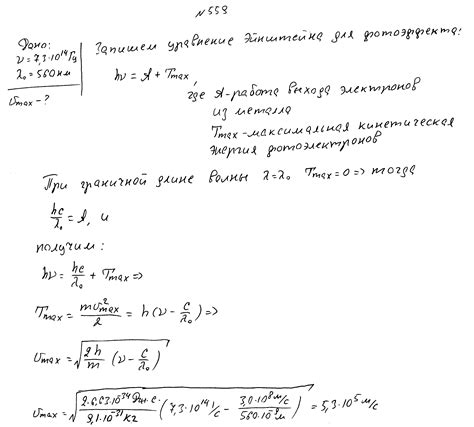 №559
Дано:
ν = 7,3·10¹⁴ Гц
λ₀ = 560 нм
υmax - ?
Запишем уравнение Эйнштейна для фотоэффекта:
hν = A + Tmax,
где A - работа выхода электронов
из металла
Tmax - максимальная кинетическая
энергия фотоэлектронов
При граничной длине волны λ=λ₀ Tmax = 0 => тогда
hc/λ₀ = A, и
получим:
hν = hc/λ₀ + Tmax =>
Tmax = mυ²max/2 = h(ν - c/λ₀) =>
υmax = √(2h/m (ν - c/λ₀))
υmax = √(2·6,63·10³⁴ Дж·с/9,1·10⁻³¹ кг (7,3·10¹⁴ 1/с - 3,0·10⁸ м/с/560·10⁻⁹ м)) = 5,3·10⁵ м/с